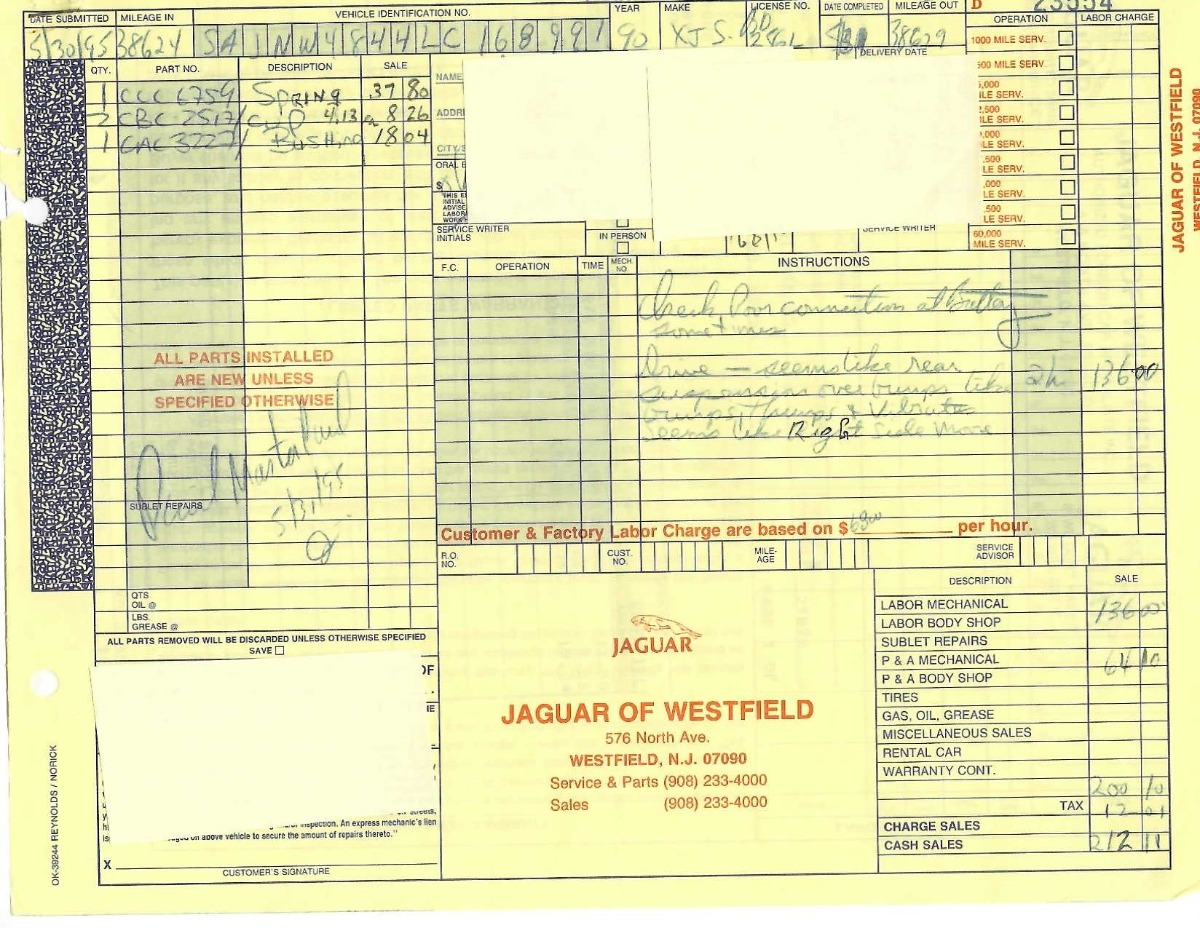 DATE SUBMITTED MILEAGE IN VEHICLE IDENTIFICATION NO. YEAR MAKE LICENSE NO. DATE COMPLETED MILEAGE OUT D 23554
5/30/95 38624 SAJNW4844LC168991 90 XJS 38629
OPERATION LABOR CHARGE
1000 MILE SERV.
DELIVERY DATE
500 MILE SERV.
,000
ILE SERV.
,500
ILE SERV.
,000
ILE SERV.
,500
LE SERV.
,000
LE SERV.
,500
LE SERV.
60,000
MILE SERV.
QTY. PART NO. DESCRIPTION SALE
1 CCC6759 Spring 37 80
2 CBC 2517/ clip 4.13 ea 8 26
1 CAC3227/ Bushing 18 04
NAME
ADDR
CITY/S
ORAL E
$
THIS E
INITIAL
ADVISE
LABOR
WORK
SERVICE WRITER
INITIALS
IN PERSON
SERVICE WRITER
F.C. OPERATION TIME MECH. NO. INSTRUCTIONS
Check Poor connection at Battery
sometimes
Drive — seems like rear
suspension over bumps like 2h 136 00
bumps thumps & Vibrates
Seems like Right side more
ALL PARTS INSTALLED
ARE NEW UNLESS
SPECIFIED OTHERWISE
5/31/95
SUBLET REPAIRS
Customer & Factory Labor Charge are based on $ 68 00 per hour.
R.O. NO. CUST. NO. MILE-AGE SERVICE ADVISOR
QTS
OIL @
LBS.
GREASE @
ALL PARTS REMOVED WILL BE DISCARDED UNLESS OTHERWISE SPECIFIED
SAVE
OF
inspection. An express mechanic's lien
on above vehicle to secure the amount of repairs thereto."
X
CUSTOMER'S SIGNATURE
JAGUAR
JAGUAR OF WESTFIELD
576 North Ave.
WESTFIELD, N.J. 07090
Service & Parts (908) 233-4000
Sales (908) 233-4000
DESCRIPTION SALE
LABOR MECHANICAL 136 00
LABOR BODY SHOP
SUBLET REPAIRS
P & A MECHANICAL 64 10
P & A BODY SHOP
TIRES
GAS, OIL, GREASE
MISCELLANEOUS SALES
RENTAL CAR
WARRANTY CONT.
200 10
TAX 12 01
CHARGE SALES
CASH SALES 212 11
OK-39244 REYNOLDS / NORICK
JAGUAR OF WESTFIELD
WESTFIELD, N.J. 07090